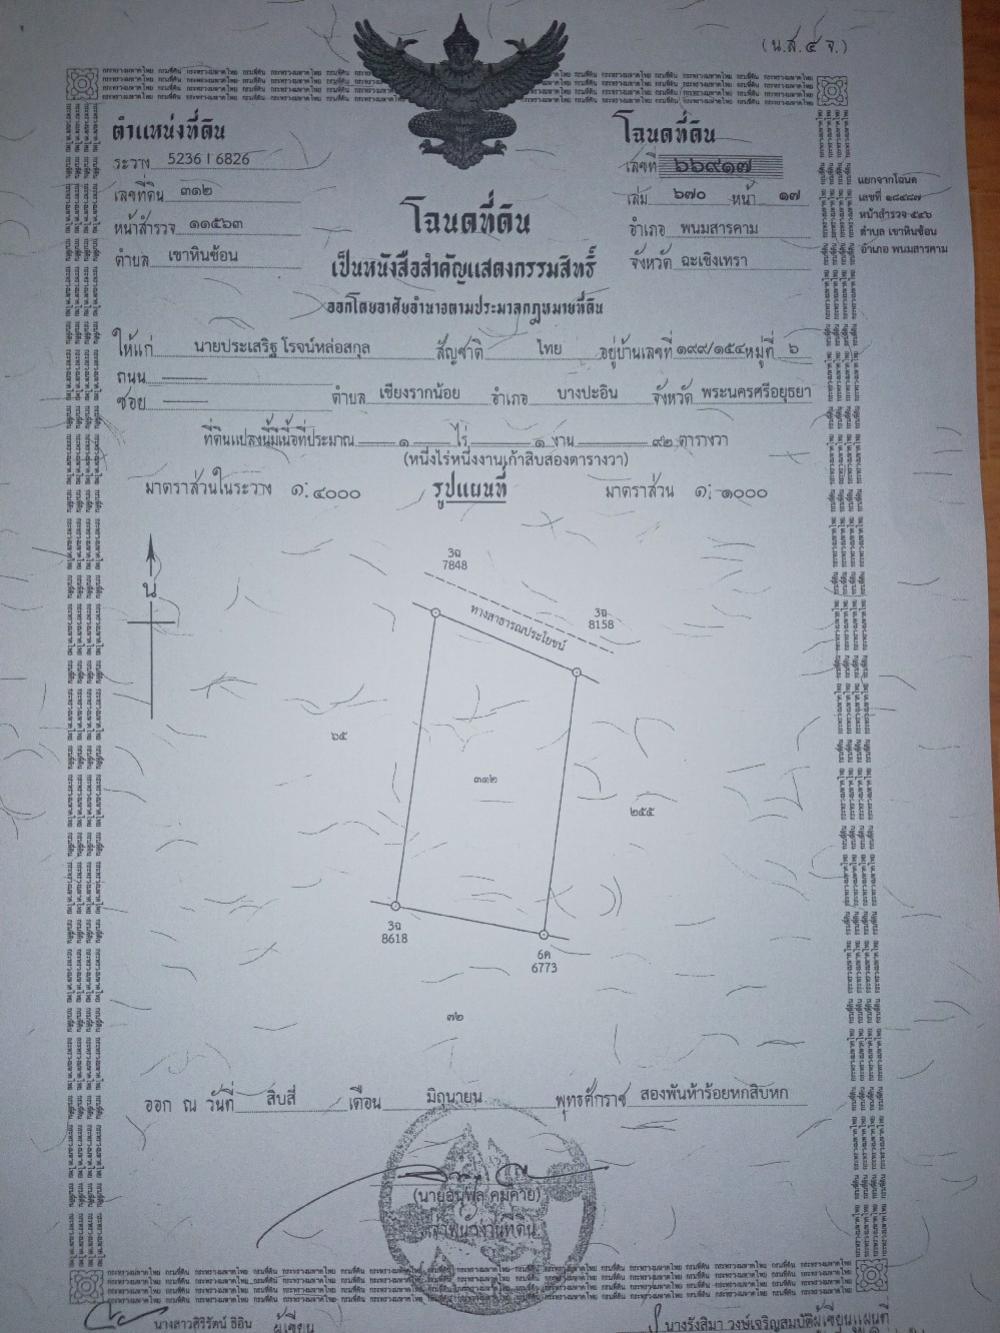 (น.ส.๔ จ.)
ตำแหน่งที่ดิน
ระวาง 5236 I 6826
เลขที่ดิน ๓๑๒
หน้าสำรวจ ๑๑๕๖๓
ตำบล เขาหินซ้อน
โฉนดที่ดิน
เลขที่ ๖๖๙๑๗
เล่ม ๖๗๐ หน้า ๑๗
อำเภอ พนมสารคาม
จังหวัด ฉะเชิงเทรา
แยกจากโฉนด
เลขที่ ๑๘๔๘๗
หน้าสำรวจ ๕๔๖
ตำบล เขาหินซ้อน
อำเภอ พนมสารคาม
โฉนดที่ดิน
เป็นหนังสือสำคัญแสดงกรรมสิทธิ์
ออกโดยอาศัยอำนาจตามประมวลกฎหมายที่ดิน
ให้แก่ นายประเสริฐ โรจน์หล่อสกุล สัญชาติ ไทย อยู่บ้านเลขที่ ๑๙๙/๑๕๔ หมู่ที่ ๖
ถนน
ซอย ตำบล เชียงรากน้อย อำเภอ บางปะอิน จังหวัด พระนครศรีอยุธยา
ที่ดินแปลงนี้มีเนื้อที่ประมาณ ๑ ไร่ ๑ งาน ๙๒ ตารางวา
(หนึ่งไร่หนึ่งงานเก้าสิบสองตารางวา)
มาตราส่วนในระวาง ๑:๔๐๐๐ รูปแผนที่ มาตราส่วน ๑:๑๐๐๐
น
3ฉ
7848
3ฉ
8158
ทางสาธารณประโยชน์
๖๕
๓๑๒
๒๕๕
3ฉ
8618
6ค
6773
๗๒
ออก ณ วันที่ สิบสี่ เดือน มิถุนายน พุทธศักราช สองพันห้าร้อยหกสิบหก
เจ้าพนักงานที่ดิน
นางสาวศิริรัตน์ ธิอิน ผู้เขียน
นางรังสิมา วงษ์เจริญสมบัติ ผู้เขียนแผนที่